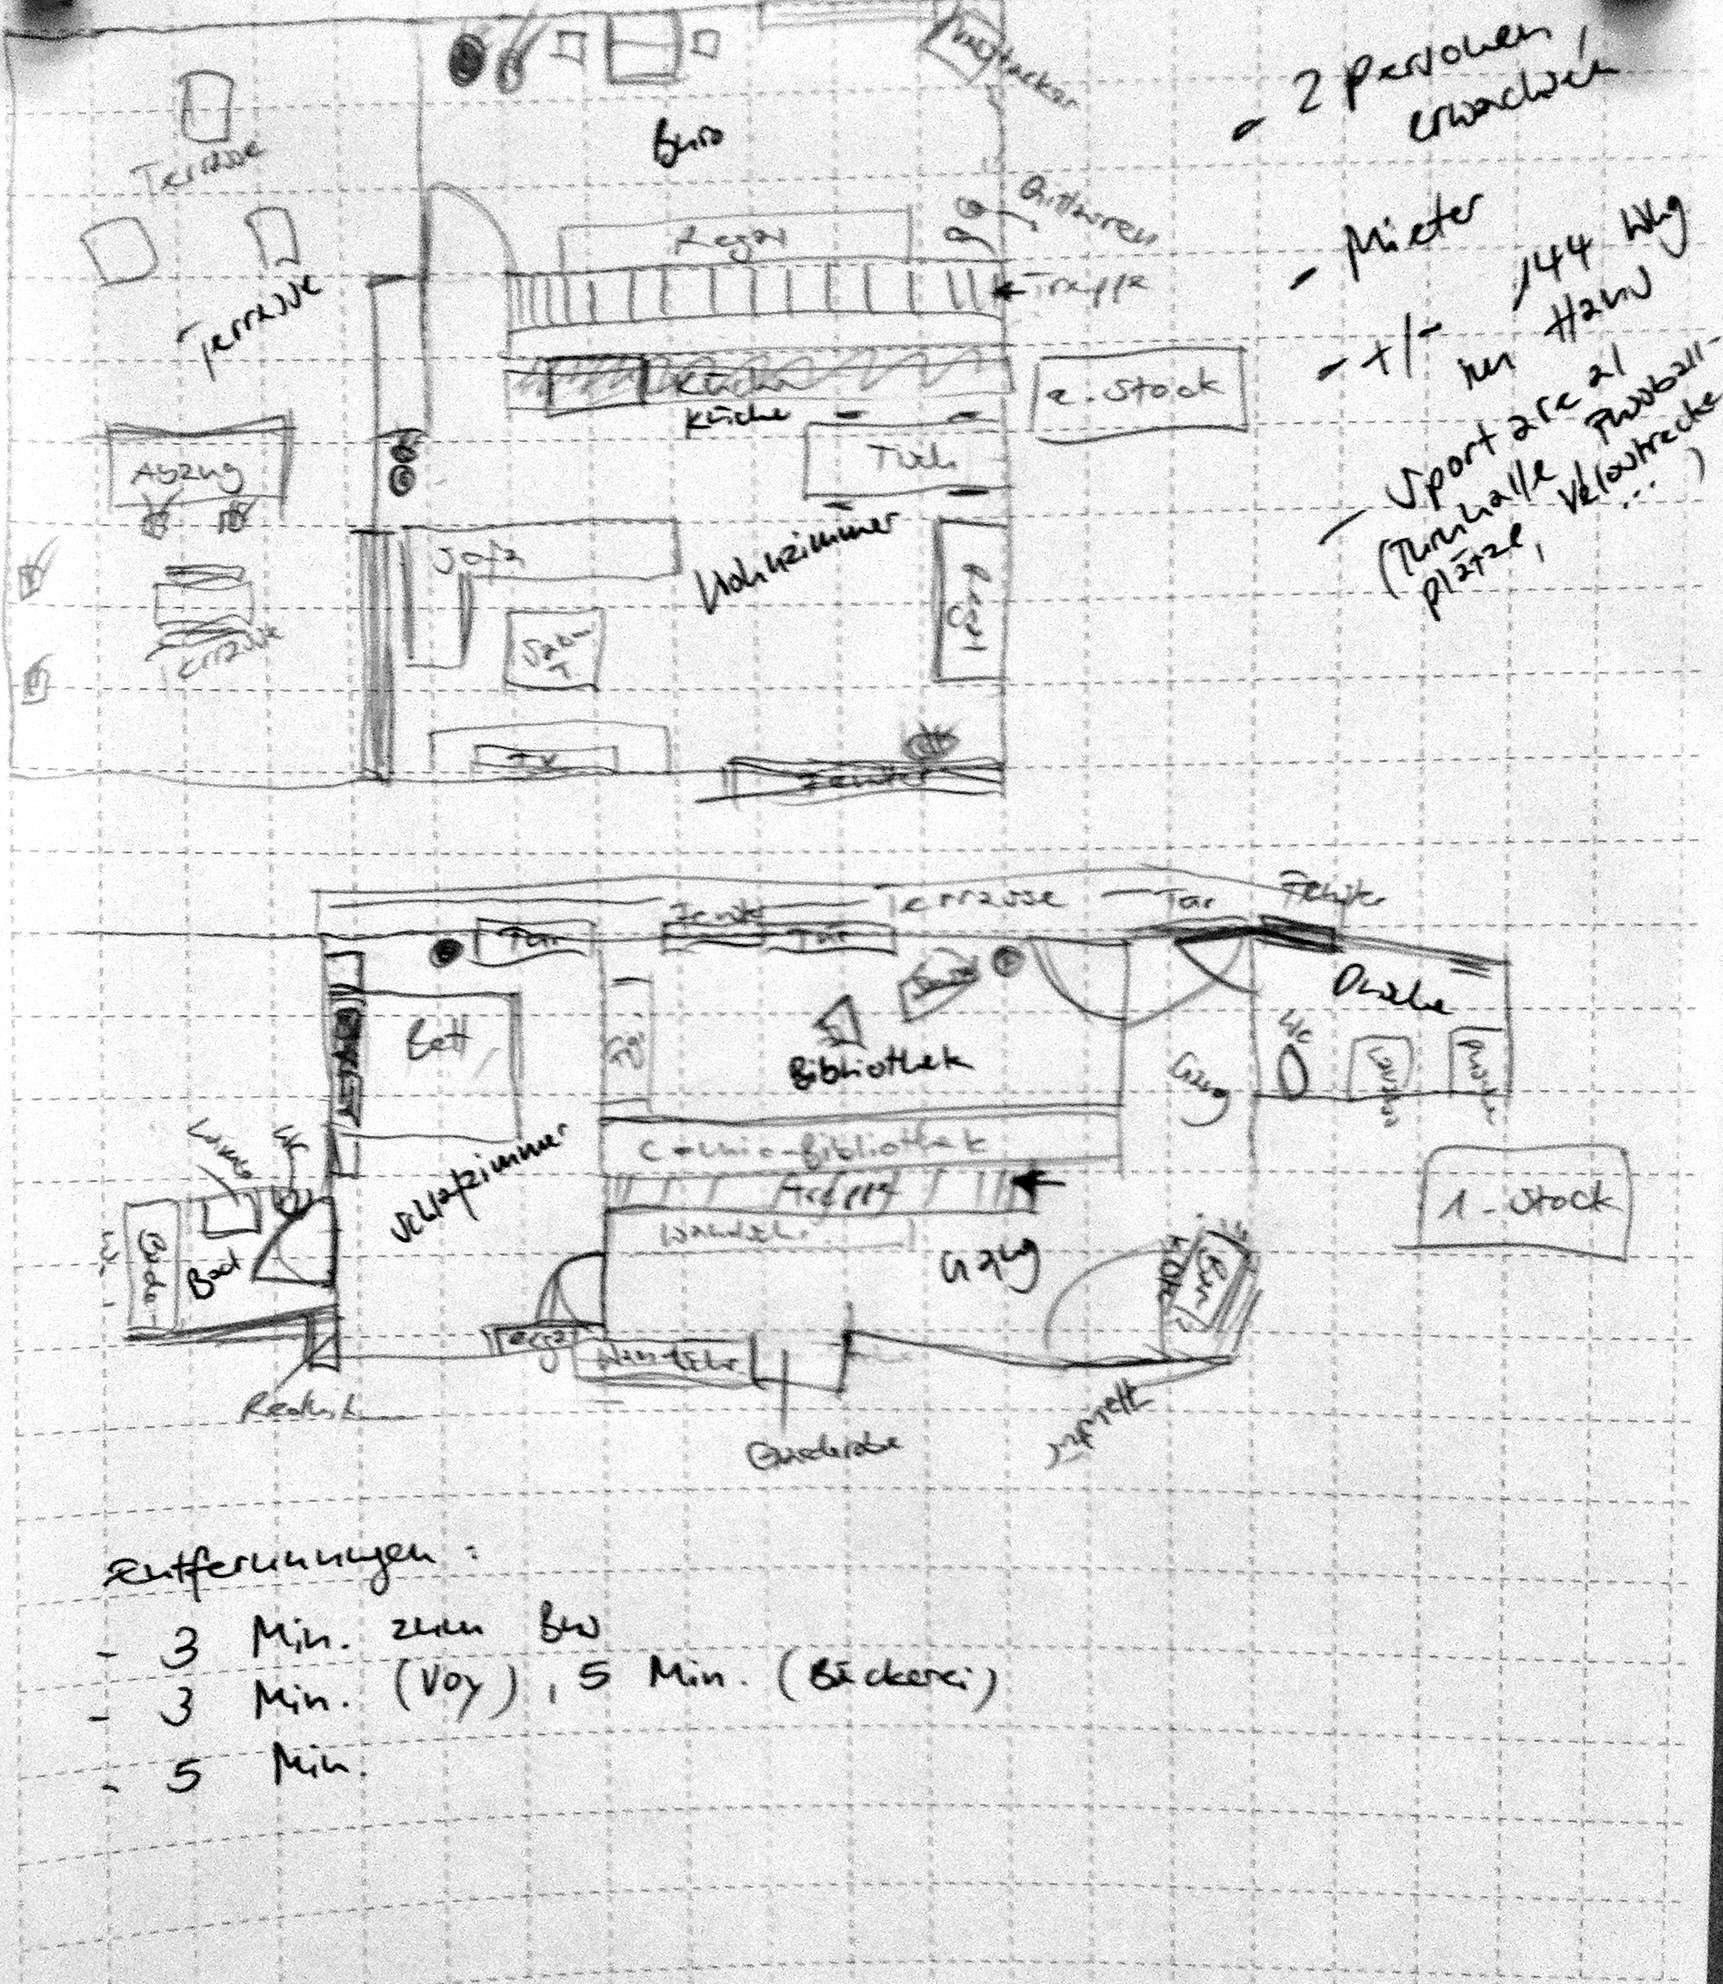 - 2 Personen,
erwachsen
- Mieter
- +/- 144 Whg
im Haus
- Sportareal
(Turnhalle, Fussball-
plätze, Velostrecke
...)
Büro
Terrasse
Gitarren
Regal
← Treppe
Terrasse
Küche
Küche
2. Stock
Abzug
Tisch
Sofa
Wohnzimmer
Regal
Terrasse
TV
Fenster
Terrasse
Tür
Fenster
Fenster
Tür
Tür
Dusche
Bett
WC
Bibliothek
Gang
Comic-Bibliothek
Schlafzimmer
Treppe
1. Stock
WC
Bad
Gang
Garderobe
Entfernungen:
- 3 Min. zum Bus
- 3 Min. (Voy), 5 Min. (Bäckerei)
- 5 Min.